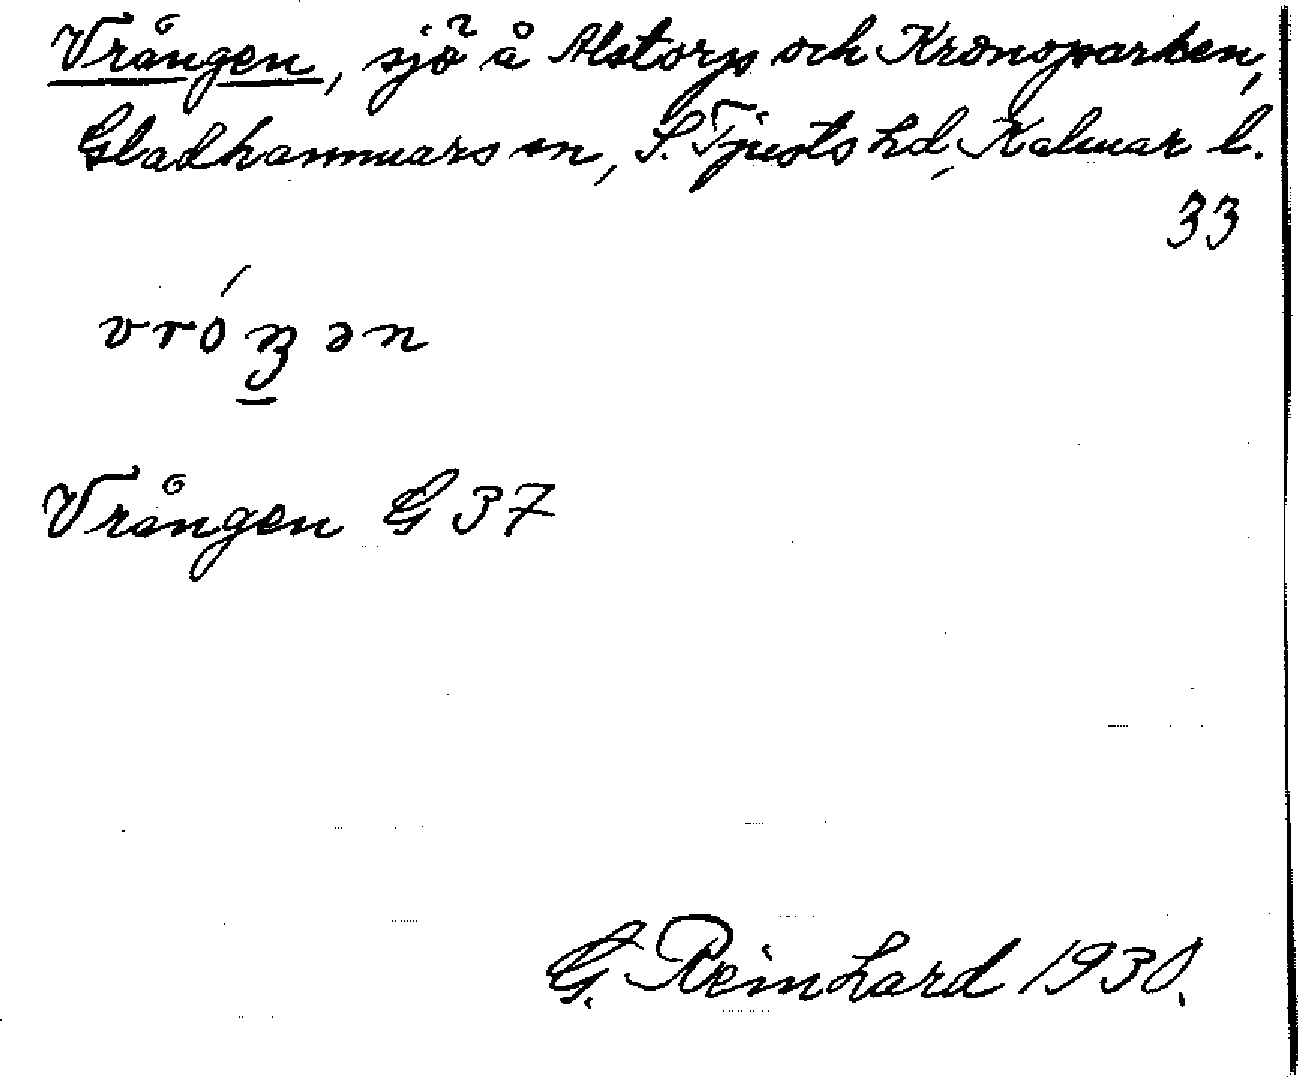 Vrången, sjö å Alstorp och Kronoparken,
Gladhammars sn, S. Tjusts hd, Kalmar l.
33
vróŋ̱ən
Vrången G 37
G. Reinhard 1930.